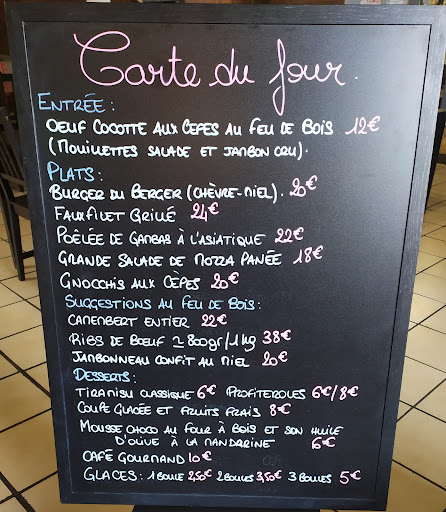 Carte du Jour.
ENTRÉE :
OEUF COCOTTE AUX CEPES AU FEU DE BOIS 12€
(MOUILLETTES SALADE ET JAMBON CRU).
PLATS :
BURGER DU BERGER (CHÈVRE-MIEL). 20€
FAUXFILET GRILLÉ 24€
POÊLÉE DE GAMBAS À L'ASIATIQUE 22€
GRANDE SALADE DE MOZZA PANÉE 18€
GNOCCHIS AUX CÈPES 20€
SUGGESTIONS AU FEU DE BOIS :
CAMENBERT ENTIER 22€
RIBS DE BOEUF ≃ 800gr/1kg 38€
JAMBONNEAU CONFIT AU MIEL 20€
DESSERTS :
TIRAMISU CLASSIQUE 6€ PROFITEROLES 6€/8€
COUPE GLACÉE ET FRUITS FRAIS 8€
MOUSSE CHOCO AU FOUR À BOIS ET SON HUILE
D'OLIVE À LA MANDARINE 6€
CAFÉ GOURMAND 10€
GLACES : 1 BOULE 2,50€ 2 BOULES 3,50€ 3 BOULES 5€